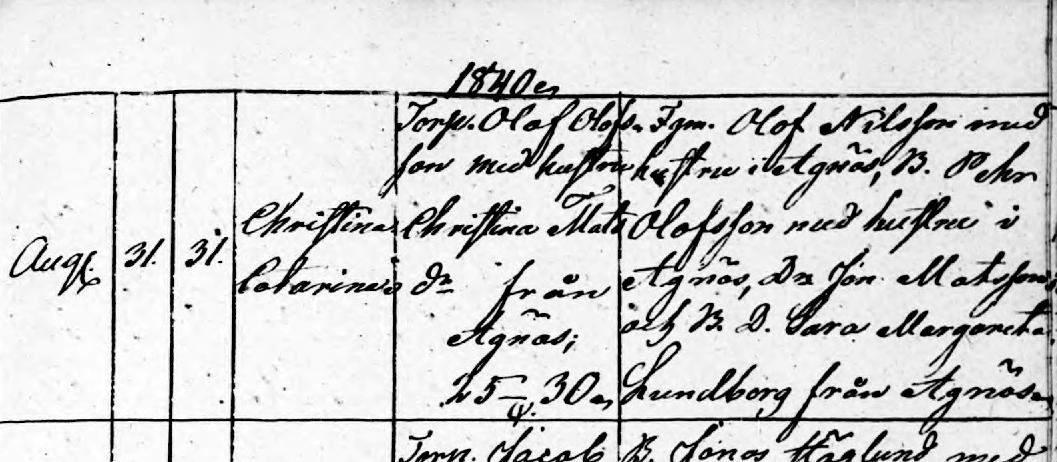 1840
Torp. Olof Olofs-
son med hustru
Christina Mats
dr från
Agnäs;
25 — 30
Aug. 31. 31.
Christina
Catarina
Fgm. Olof Nilsson med
hustru i Agnäs, B. Pehr
Olofsson med hustru i
Agnäs, Dr. Jon. Matsson
och B. D. Sara Margareta
Lundborg från Agnäs
Torp. Jacob
B. Jonas Häglund med